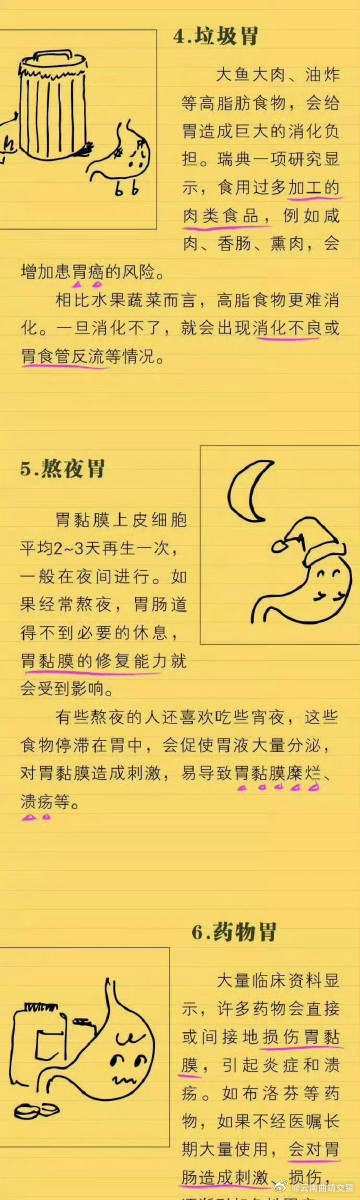 4.垃圾胃
大鱼大肉、油炸
等高脂肪食物，会给
胃造成巨大的消化负
担。瑞典一项研究显
示，食用过多加工的
肉类食品，例如咸
肉、香肠、熏肉，会
增加患胃癌的风险。
相比水果蔬菜而言，高脂食物更难消
化。一旦消化不了，就会出现消化不良或
胃食管反流等情况。
5.熬夜胃
胃黏膜上皮细胞
平均2~3天再生一次，
一般在夜间进行。如
果经常熬夜，胃肠道
得不到必要的休息，
胃黏膜的修复能力就
会受到影响。
有些熬夜的人还喜欢吃些宵夜，这些
食物停滞在胃中，会促使胃液大量分泌，
对胃黏膜造成刺激，易导致胃黏膜糜烂、
溃疡等。
6.药物胃
大量临床资料显
示，许多药物会直接
或间接地损伤胃黏
膜，引起炎症和溃
疡。如布洛芬等药
物，如果不经医嘱长
期大量使用，会对胃
肠造成刺激、损伤，
@云南曲靖交警